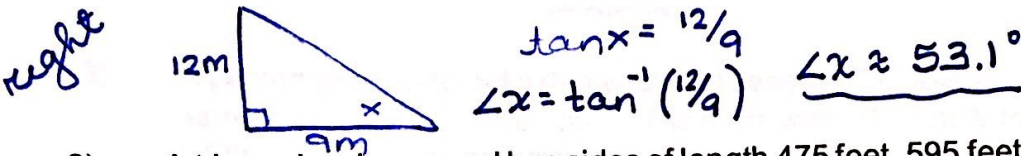 right
12m
x
9m
tan x = 12/9
∠x = tan⁻¹ (12/9)
∠x ≈ 53.1°
sides of length 475 feet, 595 feet